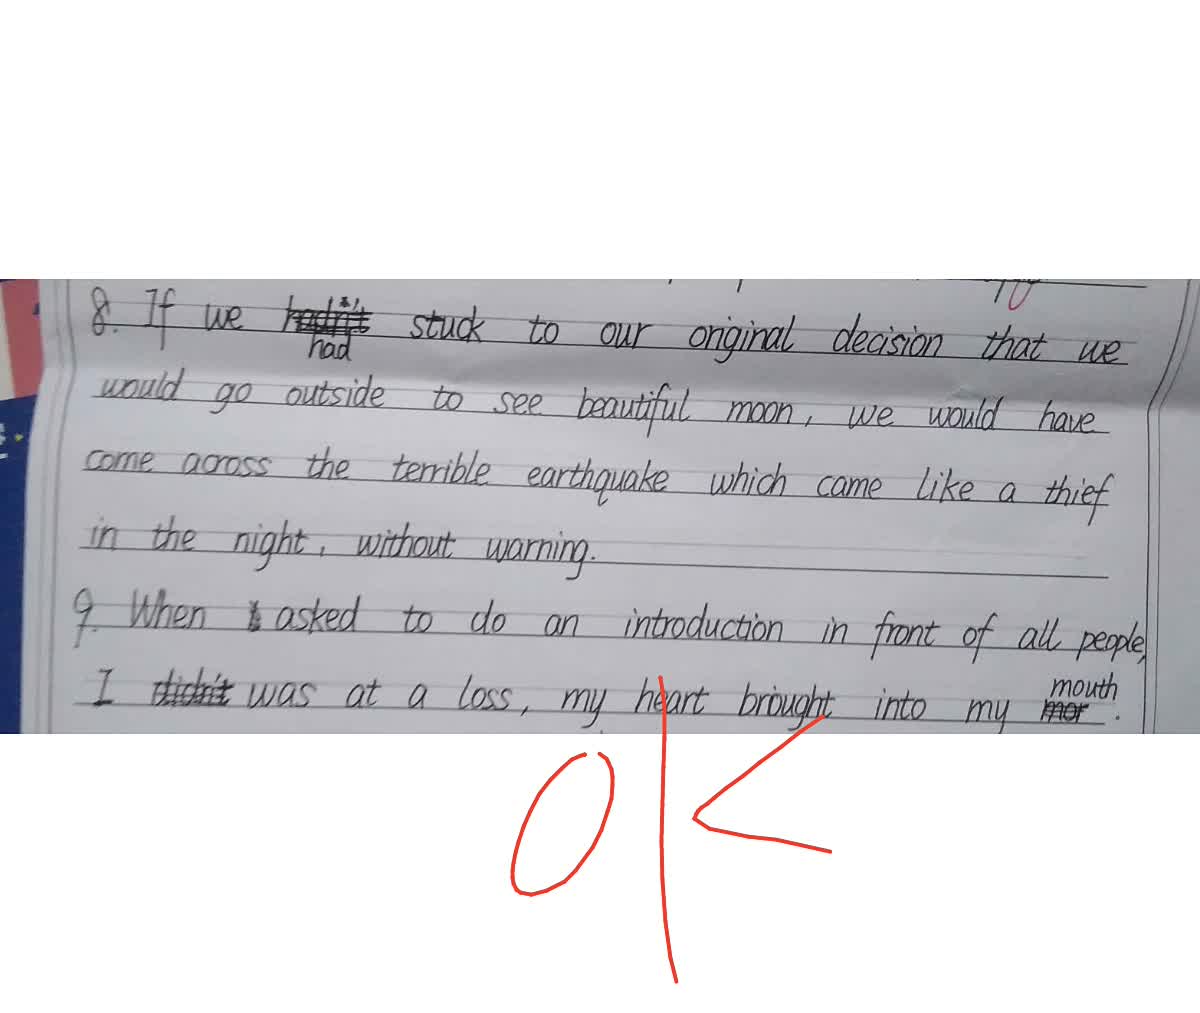 8. If we had stuck to our original decision that we
would go outside to see beautiful moon, we would have
come across the terrible earthquake which came like a thief
in the night, without warning.
9. When asked to do an introduction in front of all people,
I was at a loss, my heart brought into my mouth.
OK